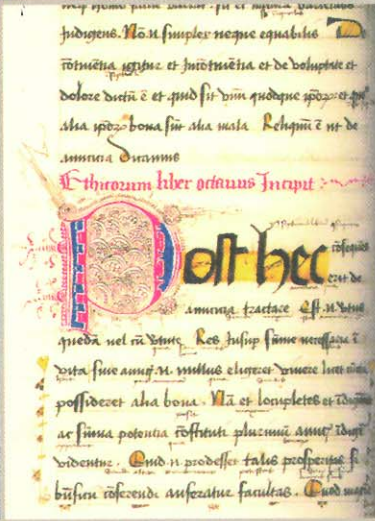 Indigens. Nō .n. simplex neque equabilis
cōtinētia igitur et Incōtinētia et de voluptate et
dolore dictū ē et quid sit vnū quodque ipoꝝ et qūo
alia ipoꝝ bona sūt alia mala Reliquū ē ut de
amicicia Dicamus
Ethicorum liber octauus Incipit
Post hec cōsequēs
erit de
amicicia tractare Est .n. Vtus
quedā uel cū Vtute. Res Insup sūme necessaria ī
vita sine amicis .n. nullus eligeret viuere licet oīa
possideret alia bona. Nā et locupletes et
ac sūma potentia cōstituti plurimū amicis Indigē
videntur. Quid .n. prodesset talis prosperitas si
bn̄ficii cōferende auferatur facultas. Quod